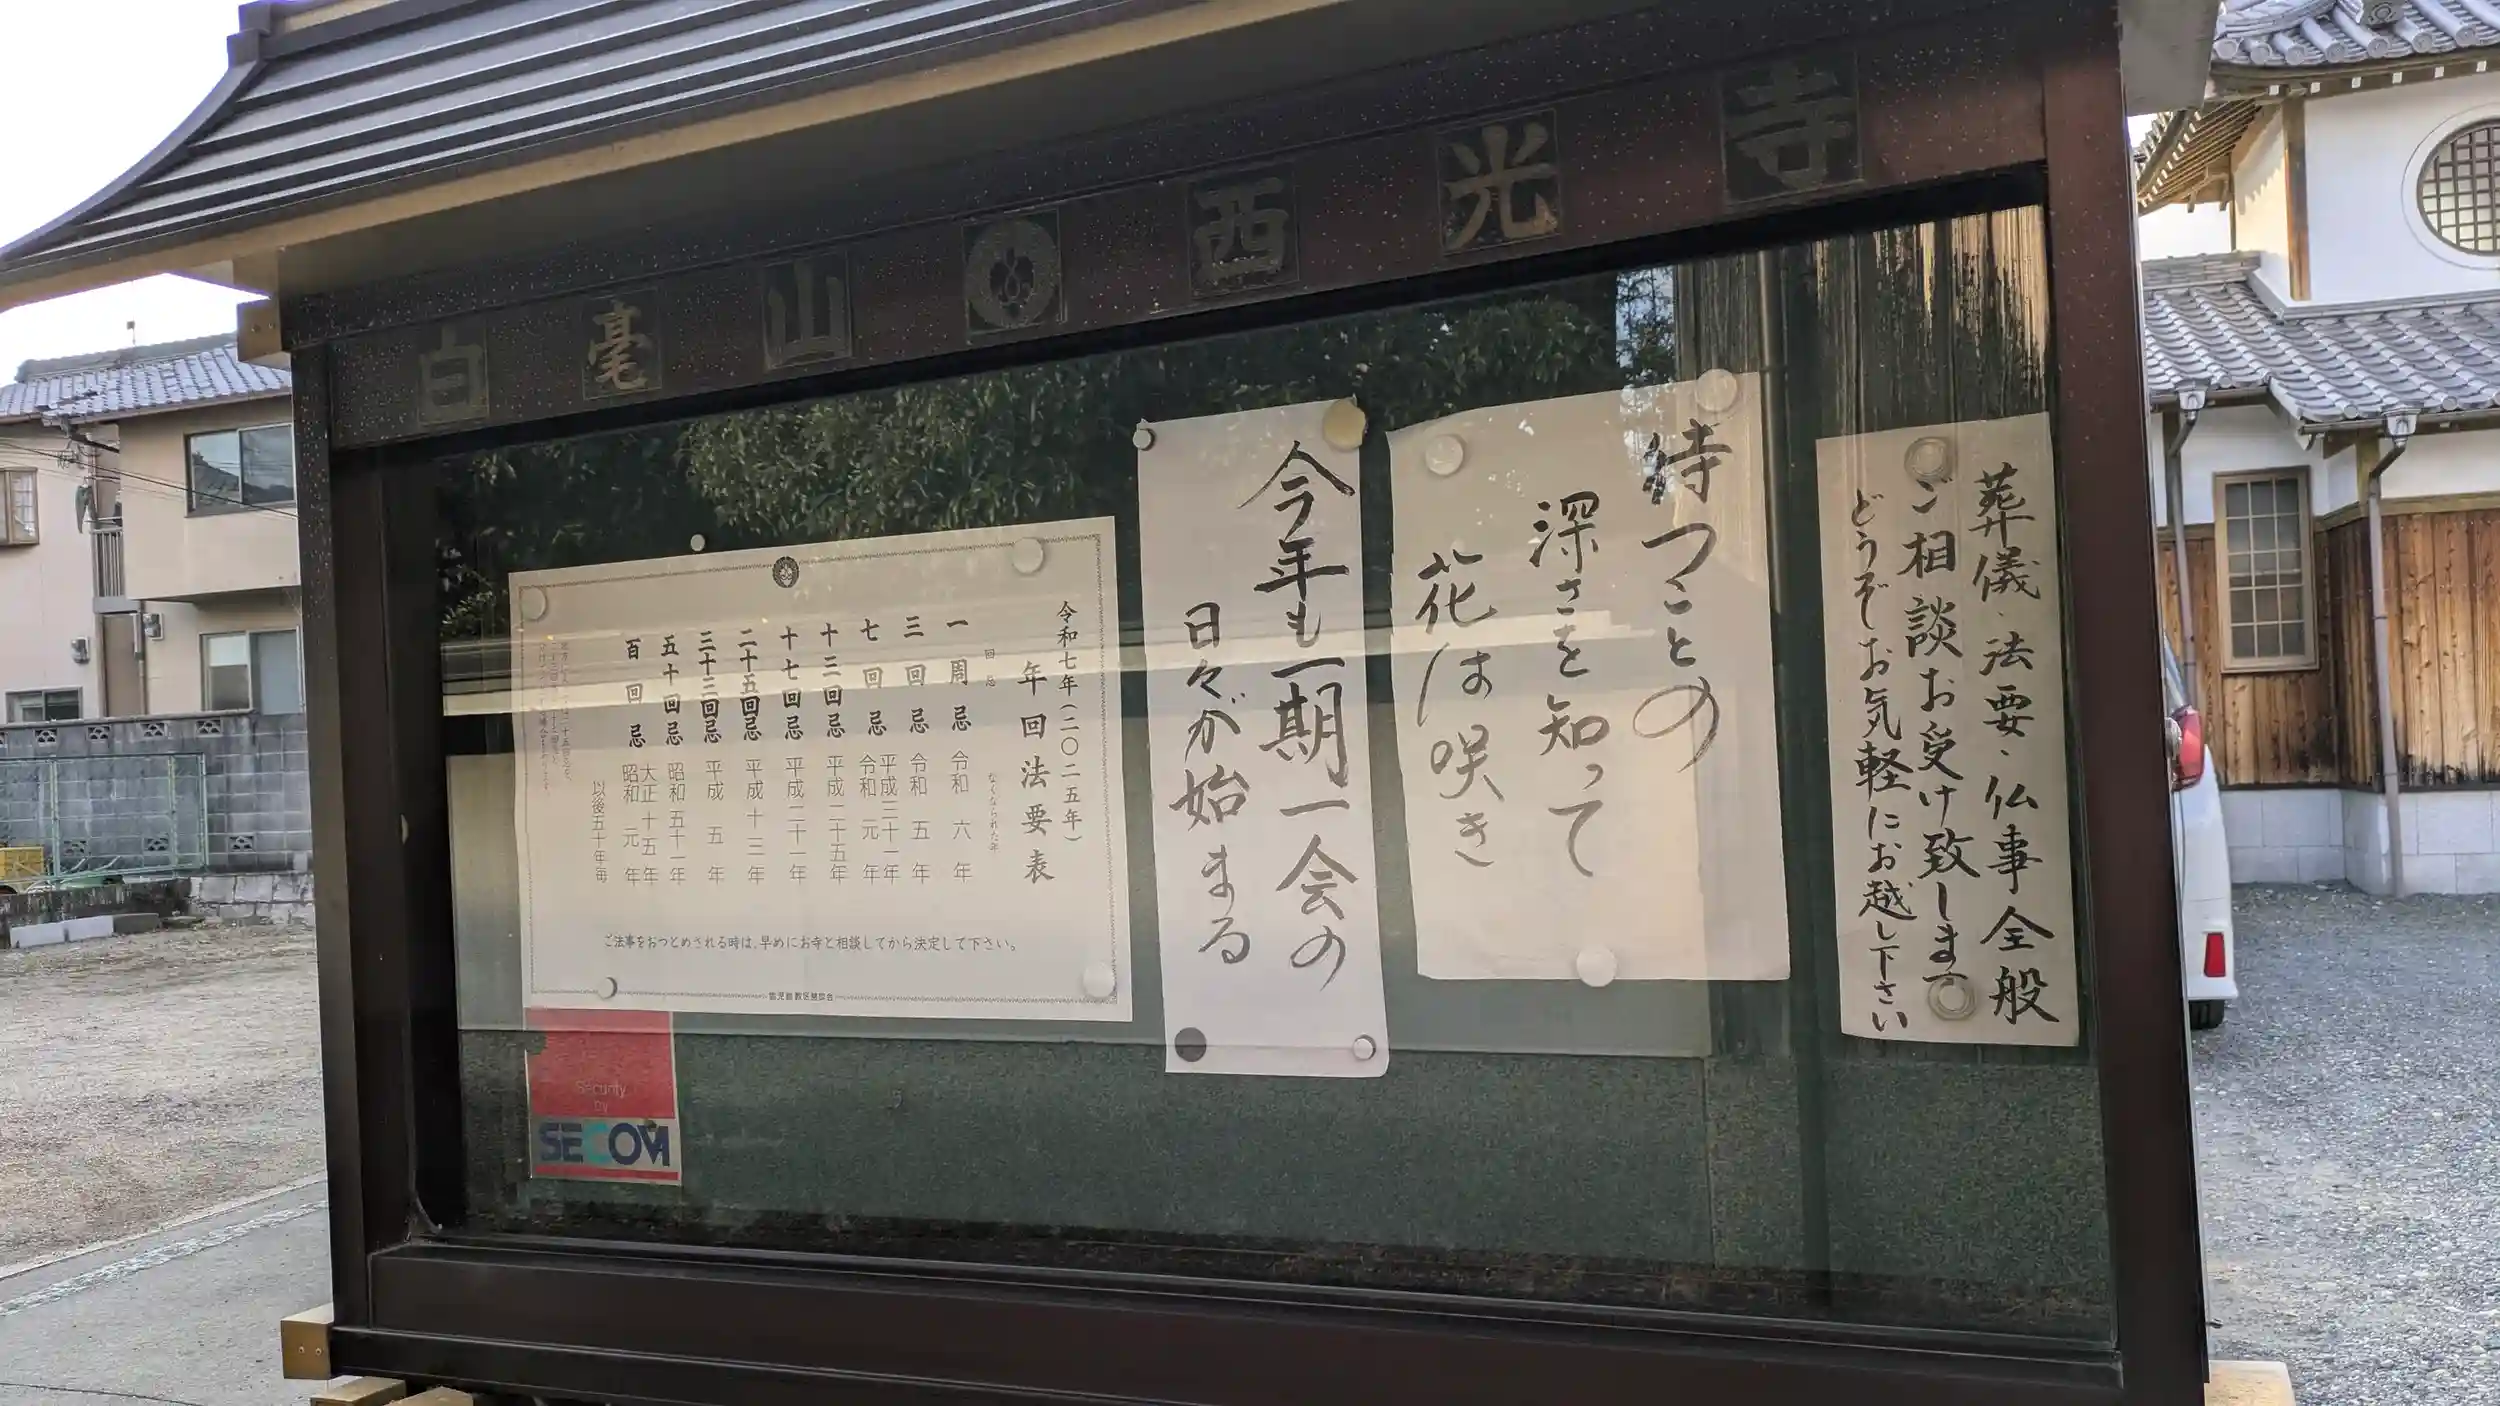 白毫山 西光寺
葬儀・法要・仏事全般
ご相談お受け致します
どうぞお気軽にお越し下さい
待つことの
深さを知って
花は咲き
今年も一期一会の
日々が始まる
令和七年(二〇二五年)
年回法要表
回忌 なくなられた年
一周忌 令和六年
三回忌 令和五年
七回忌 平成三十一年 令和元年
十三回忌 平成二十五年
十七回忌 平成二十一年
二十五回忌 平成十三年
三十三回忌 平成五年
五十回忌 昭和五十一年
百回忌 大正十五年 昭和元年
以後五十年毎
ご法事をおつとめされる時は、早めにお寺と相談してから決定して下さい。
Security
by
SECOM